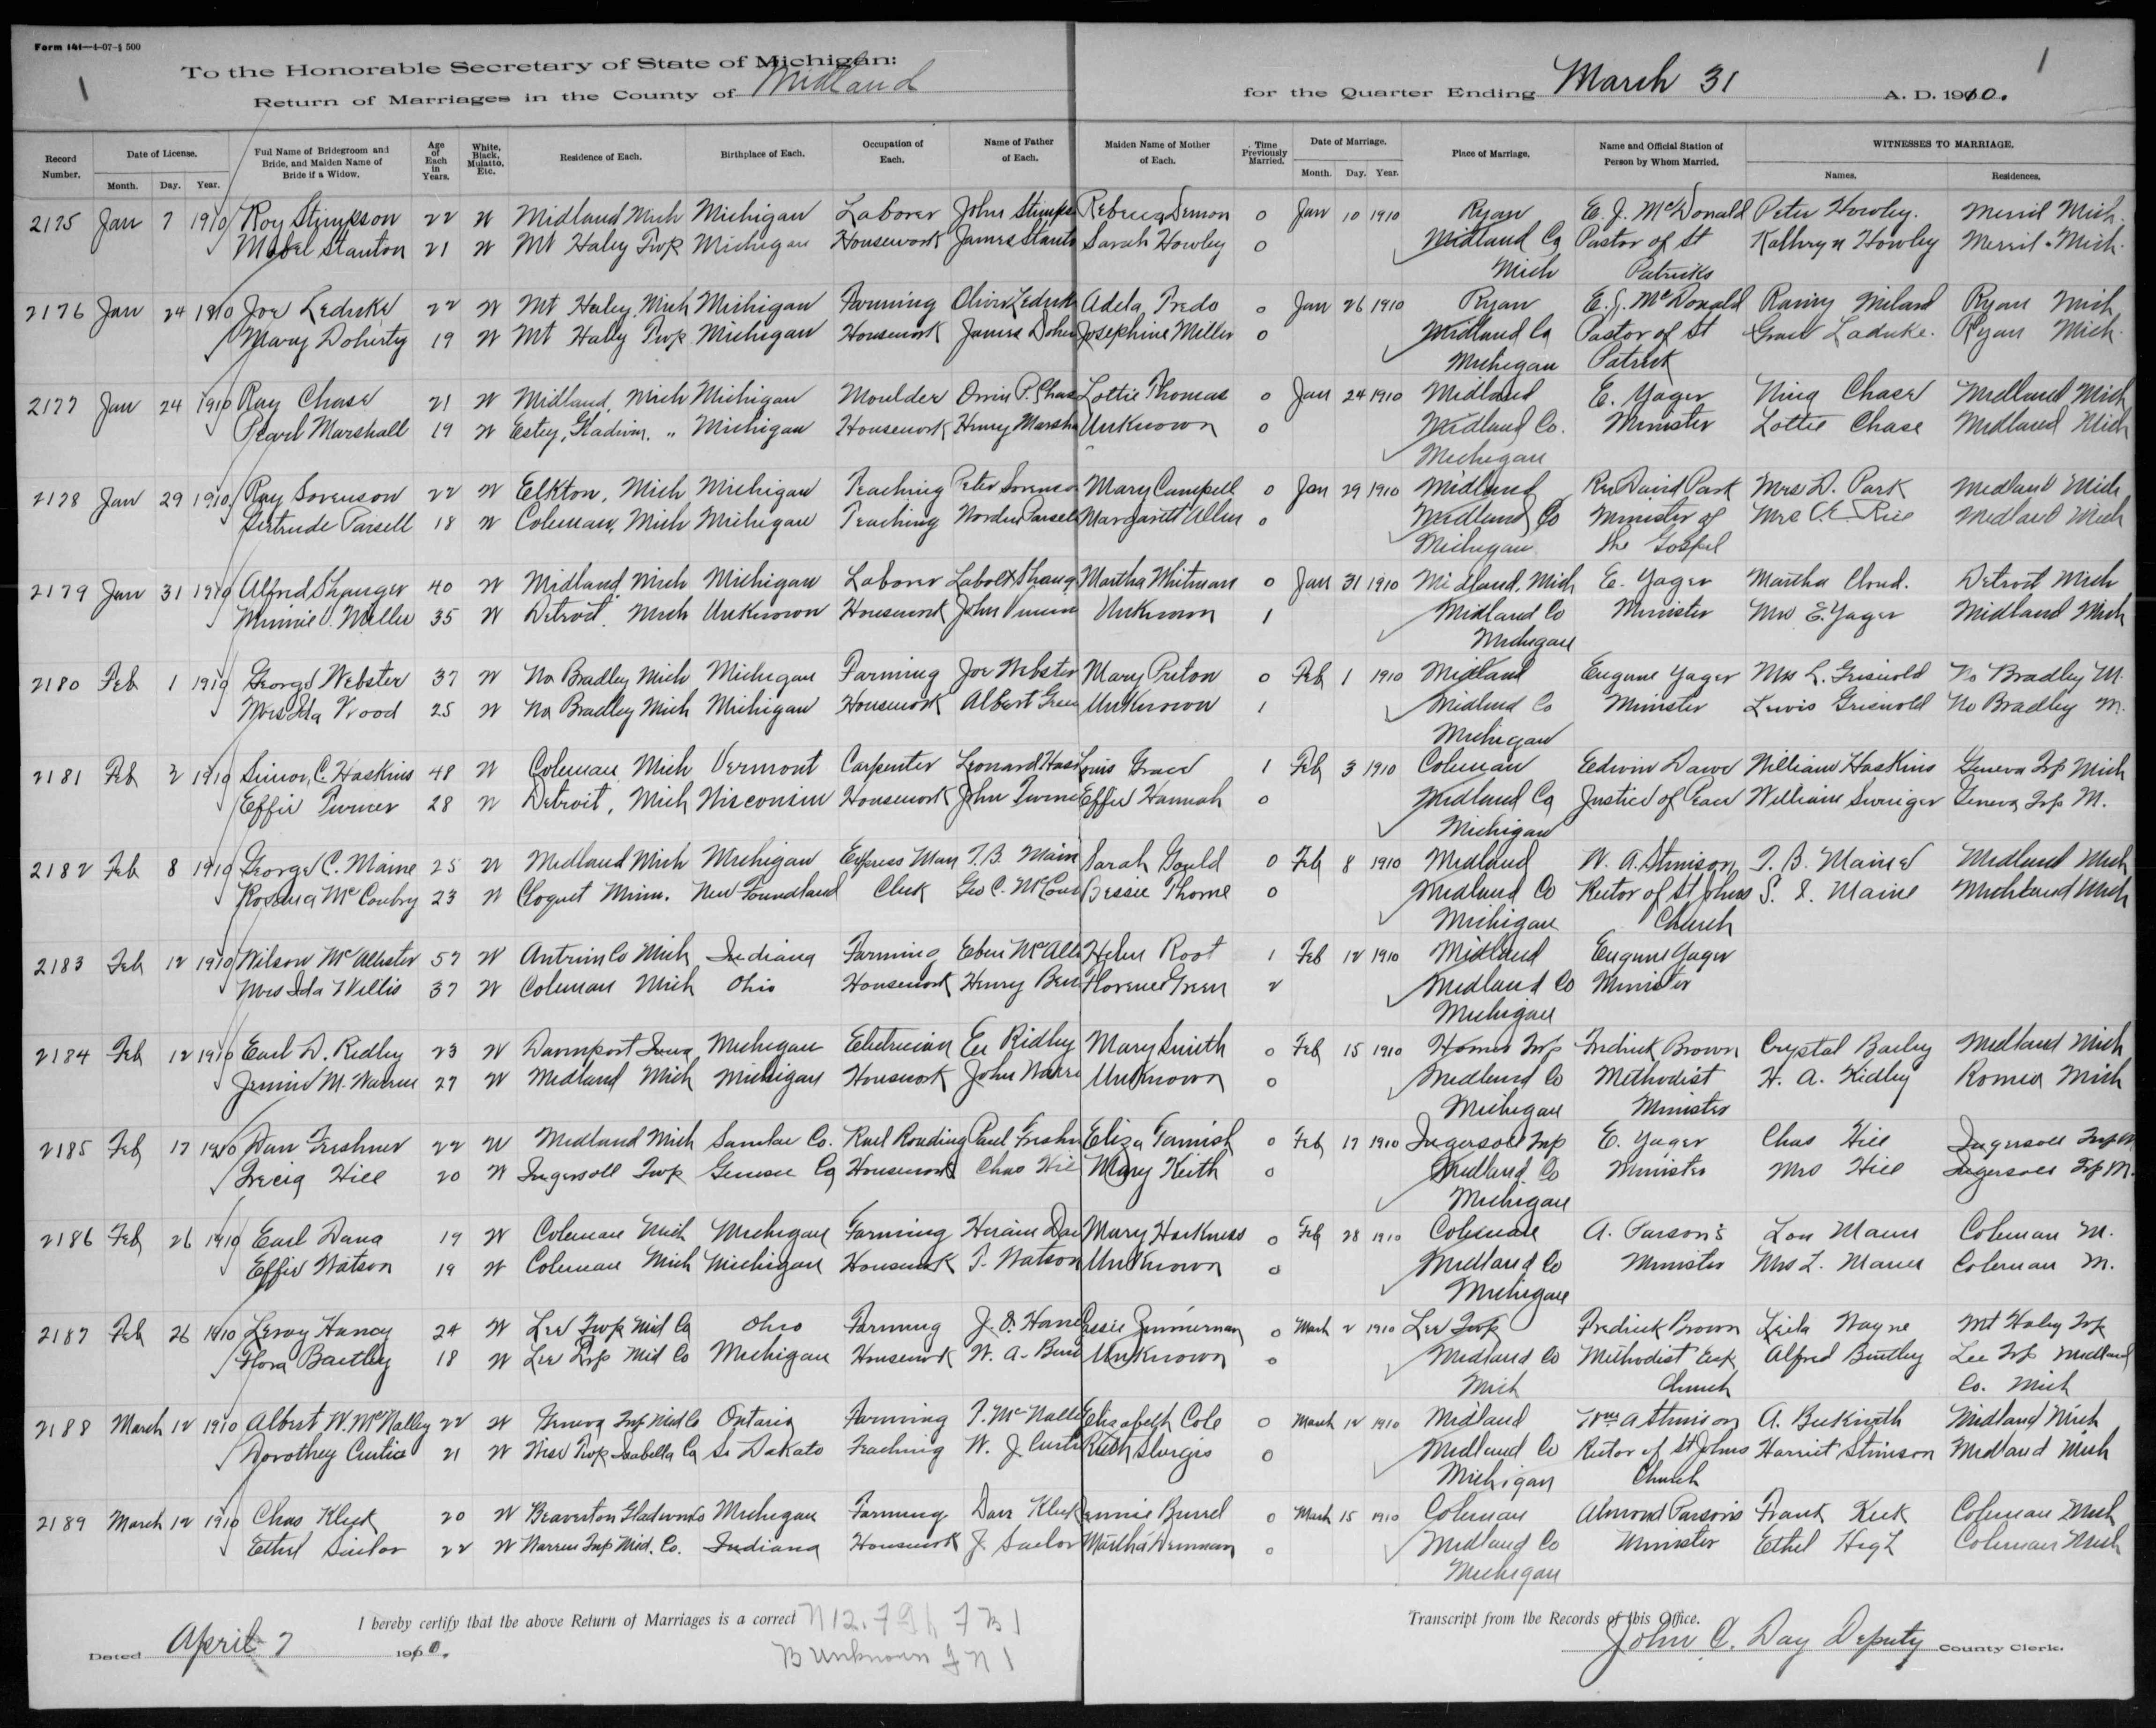 Form 141—4-07-5 500
1
1
To the Honorable Secretary of State of Michigan:
Return of Marriages in the County of Midland for the Quarter Ending March 31 A. D. 1910.
Record Number. Date of License. Full Name of Bridegroom and Bride, and Maiden Name of Bride if a Widow. Age of Each in Years. White, Black, Mulatto, Etc. Residence of Each. Birthplace of Each. Occupation of Each. Name of Father of Each. Maiden Name of Mother of Each. Time Previously Married. Date of Marriage. Place of Marriage. Name and Official Station of Person by Whom Married. WITNESSES TO MARRIAGE.
Month. Day. Year. Month. Day. Year. Names. Residences.
2175 Jan 7 1910 Roy Stimpson 22 W Midland Mich Michigan Laborer John Stimps 0 Jan 10 1910 Ryan E. J. McDonald Peter Howley. Merril Mich.
Mabel Stanton 21 W Mt Haley Twp Michigan Housework James Stanto Sarah Howley 0 Midland Co Pastor of St Kathryn Howley Merril Mich.
Mich Patricks
2176 Jan 24 1910 Joe Leduke 22 W Mt Haley Mich Michigan Farming Oliver Leduk Adela Predo 0 Jan 26 1910 Ryan E. J. McDonald Ryan Mich
Mary Doherty 19 W Mt Haley Twp Michigan Housework James Doher Josephine Miller 0 Midland Co Pastor of St Grace Laduke. Ryan Mich.
Michigan Patrick
2177 Jan 24 1910 Ray Chase 21 W Midland, Mich Michigan Moulder Orrin P. Chas Lottie Thomas 0 Jan 24 1910 Midland E. Yager Chase Midland Mich
Pearl Marshall 19 W Estey, Gladwin, " Michigan Housework Henry Marsha Unknown 0 Midland Co. Minister Lottie Chase Midland Mich
Michigan
2178 Jan 29 1910 Ray Sorenson 22 W Elkton, Mich Michigan Teaching Peter Sorenso Mary Campell 0 Jan 29 1910 Midland Rev David Park Mrs D. Park Midland Mich
Gertrude Parsell 18 W Coleman, Mich Michigan Teaching Parsell Margarett Allen 0 Midland Co Minister of Mrs Rice Midland Mich
Michigan the Gospel
2179 Jan 31 1910 Alfred Shanger 40 W Midland, Mich Michigan Laborer Martha Whitman 0 Jan 31 1910 Midland, Mich E. Yager Martha Cloud. Detroit Mich
Minnie O. Miller 35 W Detroit, Mich Unknown Housework John Unknown 1 Midland Co Minister Mrs E. Yager Midland Mich
Michigan
2180 Feb 1 1910 George Webster 37 W No Bradley Mich Michigan Farming Joe Webster Mary Preton 0 Feb 1 1910 Midland Eugene Yager Mrs L. Griswold No Bradley M.
Mrs Ida Wood 25 W No Bradley Mich Michigan Housework Albert Green Unknown 1 Midland Co Minister Lewis Griswold No Bradley M.
Michigan
2181 Feb 2 1910 Simon C. Haskins 48 W Coleman, Mich Vermont Carpenter Leonard Hask Louis Grace 1 Feb 3 1910 Coleman Edwin Dawe William Haskins Geneva Tp Mich
Effie Turner 28 W Detroit, Mich Wisconsin Housework John Turne Effie Hannah 0 Midland Co Justice of Peace William Swniger Geneva Twp M.
Michigan
2182 Feb 8 1910 George C. Maine 25 W Midland Mich Michigan Express Man T. B. Main Sarah Gould 0 Feb 8 1910 Midland W. A. Stimson, T. B. Maine Midland Mich
Rosena McConbry 23 W Cloquet Minn. New Foundland Clerk Geo C. McCon Bessie Thorne 0 Midland Co Rector of St Johns S. I. Maine Midland Mich
Michigan Church
2183 Feb 12 1910 Wilson McAllister 57 W Antrim Co Mich Indiana Farming Eben McAlli Helen Root 1 Feb 12 1910 Midland Eugene Yager
Mrs Ida Willis 37 W Coleman Mich Ohio Housework Henry Florence Green 2 Midland Co Minister
Michigan
2184 Feb 12 1910 Earl D. Ridley 23 W Davenport Iowa Michigan Electrician Ridley Mary Smith 0 Feb 15 1910 Homer Twp Fredrick Brown Crystal Bailey Midland Mich
Jennie M. Warren 27 W Midland Mich Michigan Housework John Warre Unknown 0 Midland Co Methodist H. A. Ridley Romeo Mich
Michigan Minister
2185 Feb 17 1910 Dan Freshner 22 W Midland Mich Sanilac Co. Rail Roading Paul Freshn Eliza Tamish 0 Feb 17 1910 Ingersoll Twp E. Yager Chas Hill Ingersoll Twp M.
Hill 20 W Ingersoll Twp Genesee Co Housework Chas Hil Mary Keith 0 Midland Co Minister Mrs Hill Ingersoll Tp M.
Michigan
2186 Feb 26 1910 Earl Dana 19 W Coleman Mich Michigan Farming Hiram Dan Mary Harkness 0 Feb 28 1910 Coleman A. Parsons Lon Mann Coleman M.
Effie Watson 19 W Coleman Mich Michigan Housework T. Watson Unknown 0 Midland Co Minister Mrs L. Mann Coleman M.
Michigan
2187 Feb 26 1910 Leroy Haney 24 W Lee Twp Mid Co Ohio Farming J. O. Hane Essie Zimmerman 0 March 2 1910 Lee Twp Fredrick Brown Leila Wayne Mt Haley Twp
Flora Bartley 18 W Lee Twp Mid Co Michigan Housework W. A. Unknown 0 Midland Co Methodist Alfred Bentley Lee Tp Midland
Mich Church Co. Mich
2188 March 12 1910 Albert W. McNalley 22 W Geneva Twp Mid Co Ontario Farming T. McNalle Elizabeth Cole 0 March 12 1910 Midland Wm A Stimson A. Beckwith Midland Mich
Dorothey Curtice 21 W Wise Twp Isabella Co So Dakato Teaching W. J. Curti Ruth Sturgis 0 Midland Co Rector of St Johns Harriet Stimson Midland Mich
Michigan Church
2189 March 12 1910 Chas Kleck 20 W Beaverton Gladwin Co Michigan Farming Dan Kleck Jennie Burrel 0 March 15 1910 Coleman Almond Parsons Frank Keck Coleman Mich
Ethel Sailor 22 W Warren Twp Mid. Co. Indiana Housework J. Sailor Martha Denman 0 Midland Co Minister Ethel High Coleman Mich
Michigan
I hereby certify that the above Return of Marriages is a correct Transcript from the Records of this Office.
Dated April 7 1910. John C. Day Deputy County Clerk.
B Unknown